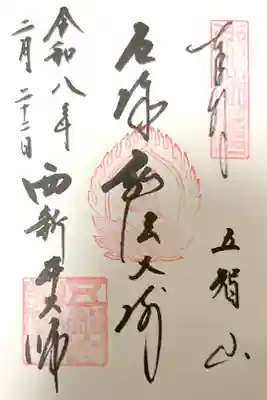 奉拝
五智山
厄除 弘法大師
令和八年
二月二十二日
西新井大師